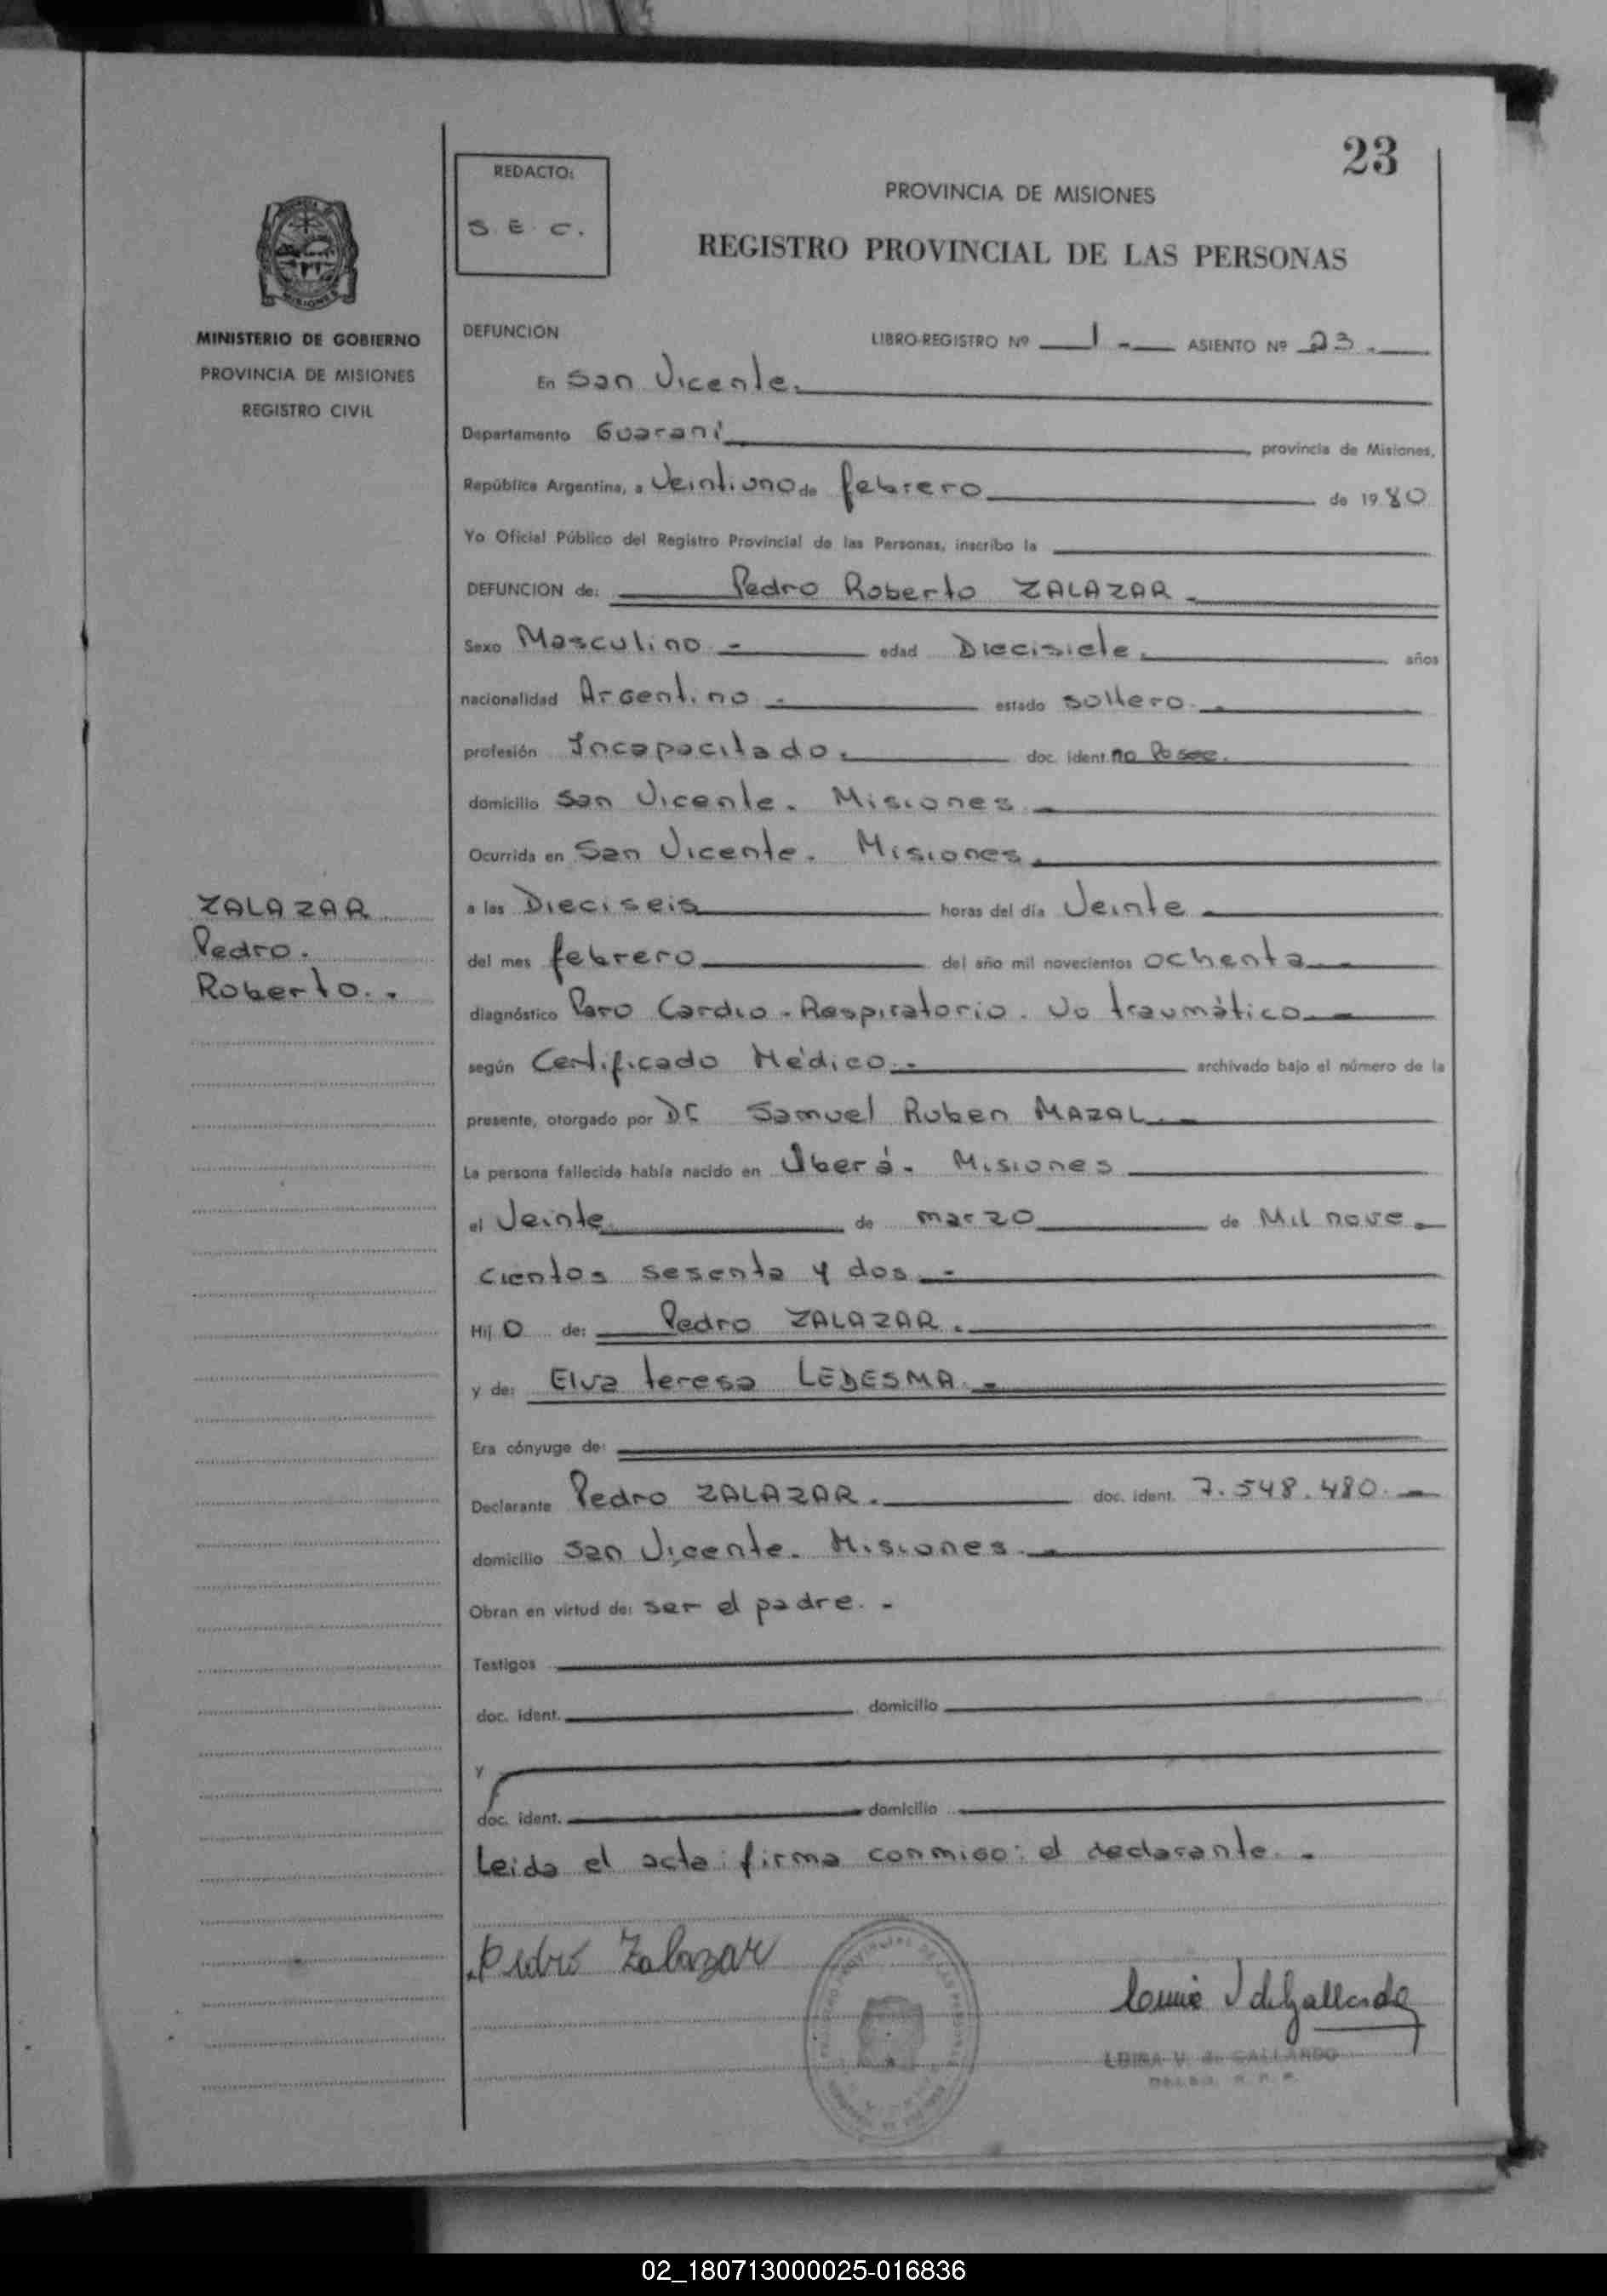 23
REDACTO:
S. E. C.
PROVINCIA DE MISIONES
REGISTRO PROVINCIAL DE LAS PERSONAS
MINISTERIO DE GOBIERNO
PROVINCIA DE MISIONES
REGISTRO CIVIL
DEFUNCION LIBRO-REGISTRO Nº 1.- ASIENTO Nº 23.
En San Vicente.
Departamento Guaraní , provincia de Misiones,
República Argentina, a Veintiuno de febrero de 1980
Yo Oficial Público del Registro Provincial de las Personas, inscribo la
DEFUNCION de: Pedro Roberto ZALAZAR.
Sexo Masculino.- edad Diecisiete. años
nacionalidad Argentino. estado soltero.
profesión Incapacitado. doc. ident. no Posee.
domicilio San Vicente. Misiones
Ocurrida en San Vicente. Misiones.
a las Dieciseis horas del día Veinte
del mes febrero del año mil novecientos ochenta
diagnóstico Paro Cardio-Respiratorio. No traumático
según Certificado Médico. archivado bajo el número de la
presente, otorgado por Dr Samuel Ruben MAZAL.
La persona fallecida había nacido en Oberá. Misiones
el Veinte de marzo de Mil nove
cientos sesenta y dos.-
Hij o de: Pedro ZALAZAR.
y de: Elva teresa LEDESMA.-
Era cónyuge de:
Declarante Pedro ZALAZAR. doc. ident. 7.548.480.-
domicilio San Vicente. Misiones.
Obran en virtud de: ser el padre.-
Testigos
doc. ident. domicilio
y
doc. ident. domicilio
Leida el acta: firma conmigo: el declarante.-
ZALAZAR
Pedro.
Roberto..
Pedro Zalazar
V. de GALLARDO
02_180713000025-016836